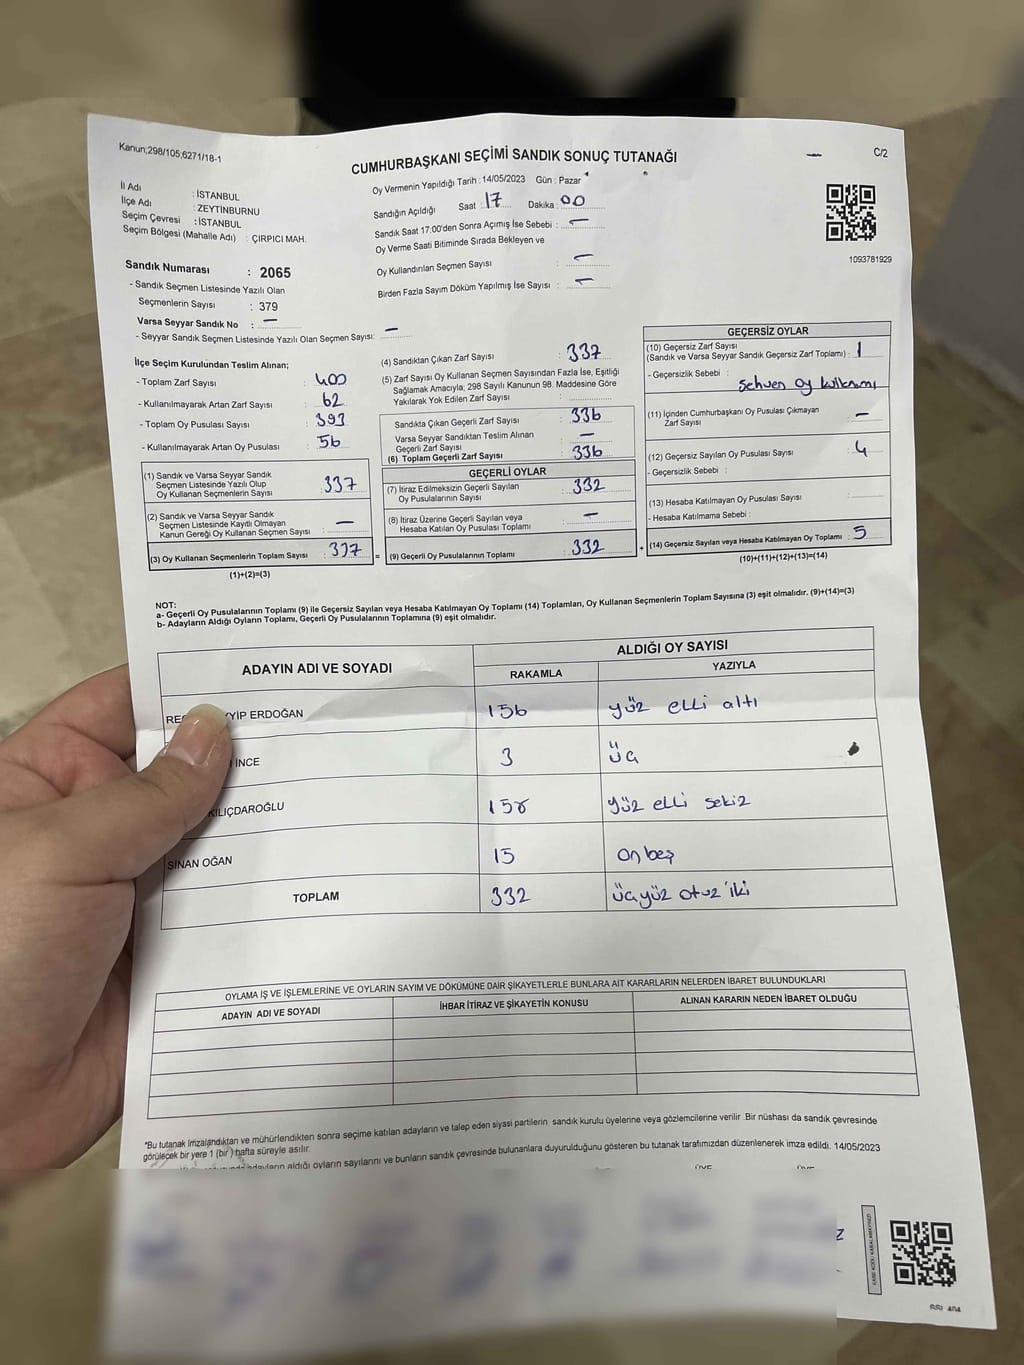 Kanun;298/105,6271/18-1
CUMHURBAŞKANI SEÇİMİ SANDIK SONUÇ TUTANAĞI
C/2
İl Adı : İSTANBUL
İlçe Adı : ZEYTİNBURNU
Seçim Çevresi : İSTANBUL
Seçim Bölgesi (Mahalle Adı) : ÇIRPICI MAH.
Oy Vermenin Yapıldığı Tarih : 14/05/2023 Gün : Pazar
Sandığın Açıldığı Saat : 17 Dakika : 00
Sandık Saat 17:00'den Sonra Açımış İse Sebebi : —
Oy Verme Saati Bitiminde Sırada Bekleyen ve
Oy Kullandırılan Seçmen Sayısı : —
Birden Fazla Sayım Döküm Yapılmış İse Sayısı : —
1093781929
Sandık Numarası : 2065
- Sandık Seçmen Listesinde Yazılı Olan
Seçmenlerin Sayısı : 379
Varsa Seyyar Sandık No : —
- Seyyar Sandık Seçmen Listesinde Yazılı Olan Seçmen Sayısı: —
İlçe Seçim Kurulundan Teslim Alınan;
- Toplam Zarf Sayısı : 400
- Kullanılmayarak Artan Zarf Sayısı : 62
- Toplam Oy Pusulası Sayısı : 393
- Kullanılmayarak Artan Oy Pusulası : 56
(1) Sandık ve Varsa Seyyar Sandık
Seçmen Listesinde Yazılı Olup
Oy Kullanan Seçmenlerin Sayısı : 337
(2) Sandık ve Varsa Seyyar Sandık
Seçmen Listesinde Kayıtlı Olmayan
Kanun Gereği Oy Kullanan Seçmen Sayısı : —
(3) Oy Kullanan Seçmenlerin Toplam Sayısı : 337 =
(1)+(2)=(3)
(4) Sandıktan Çıkan Zarf Sayısı : 337
(5) Zarf Sayısı Oy Kullanan Seçmen Sayısından Fazla İse, Eşitliği
Sağlamak Amacıyla; 298 Sayılı Kanunun 98. Maddesine Göre
Yakılarak Yok Edilen Zarf Sayısı :
Sandıkta Çıkan Geçerli Zarf Sayısı : 336
Varsa Seyyar Sandıktan Teslim Alınan
Geçerli Zarf Sayısı : —
(6) Toplam Geçerli Zarf Sayısı : 336
GEÇERLİ OYLAR
(7) İtiraz Edilmeksizin Geçerli Sayılan
Oy Pusulalarının Sayısı : 332
(8) İtiraz Üzerine Geçerli Sayılan veya
Hesaba Katılan Oy Pusulası Toplamı : —
(9) Geçerli Oy Pusulalarının Toplamı : 332 +
GEÇERSİZ OYLAR
(10) Geçersiz Zarf Sayısı
(Sandık ve Varsa Seyyar Sandık Geçersiz Zarf Toplamı) : 1
- Geçersizlik Sebebi :
Sehven oy kullanımı
(11) İçinden Cumhurbaşkanı Oy Pusulası Çıkmayan
Zarf Sayısı : —
(12) Geçersiz Sayılan Oy Pusulası Sayısı : 4
- Geçersizlik Sebebi :
(13) Hesaba Katılmayan Oy Pusulası Sayısı :
- Hesaba Katılmama Sebebi :
(14) Geçersiz Sayılan veya Hesaba Katılmayan Oy Toplamı : 5
(10)+(11)+(12)+(13)=(14)
NOT:
a- Geçerli Oy Pusulalarının Toplamı (9) ile Geçersiz Sayılan veya Hesaba Katılmayan Oy Toplamı (14) Toplamları, Oy Kullanan Seçmenlerin Toplam Sayısına (3) eşit olmalıdır. (9)+(14)=(3)
b- Adayların Aldığı Oyların Toplamı, Geçerli Oy Pusulalarının Toplamına (9) eşit olmalıdır.
ADAYIN ADI VE SOYADI
ALDIĞI OY SAYISI
RAKAMLA YAZIYLA
ERDOĞAN 156 yüz elli altı
İNCE 3 üç
KILIÇDAROĞLU 158 yüz elli sekiz
SİNAN OĞAN 15 on beş
TOPLAM 332 üçyüz otuz iki
OYLAMA İŞ VE İŞLEMLERİNE VE OYLARIN SAYIM VE DÖKÜMÜNE DAİR ŞİKAYETLERLE BUNLARA AİT KARARLARIN NELERDEN İBARET BULUNDUKLARI
ADAYIN ADI VE SOYADI İHBAR İTİRAZ VE ŞİKAYETİN KONUSU ALINAN KARARIN NEDEN İBARET OLDUĞU
*Bu tutanak İmzalandıktan ve mühürlendikten sonra seçime katılan adayların ve talep eden siyasi partilerin sandık kurulu üyelerine veya gözlemcilerine verilir .Bir nüshası da sandık çevresinde
görülecek bir yere 1 (bir ) hafta süreyle asılır.
adayların aldığı oyların sayılarını ve bunların sandık çevresinde bulunanlara duyurulduğunu gösteren bu tutanak tarafımızdan düzenlenerek imza edildi. 14/05/2023